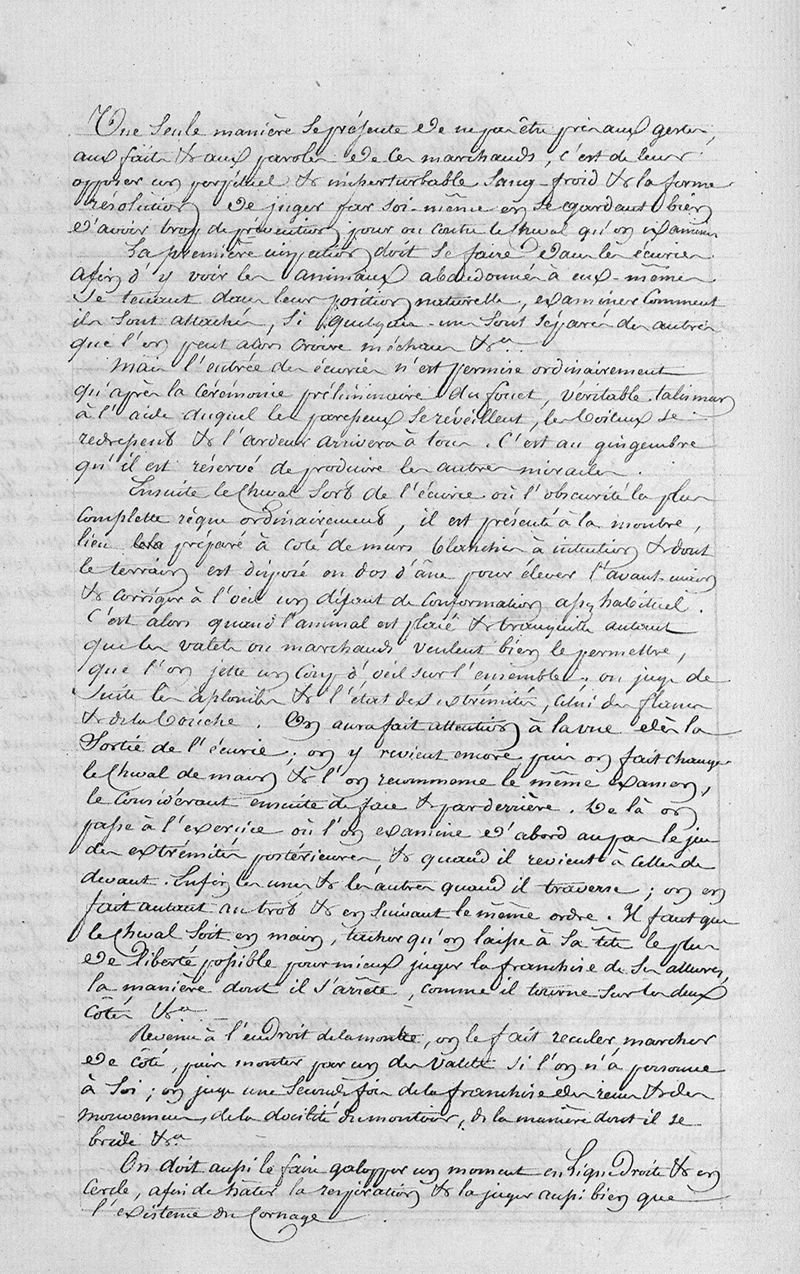 Une seule manière se présente de ne pas être pris aux gestes,
aux faits & aux paroles de ces marchands, c'est de leur
opposer un perpétuel & imperturbable sang-froid & la ferme
résolution de juger par soi-même en se gardant bien
d'avoir trop de prévention pour ou contre le cheval qu'on examine
La première inspection doit se faire dans les écuries
afin d'y voir les animaux abandonnés à eux-mêmes
se tenant dans leur position naturelle, examiner comment
ils sont attachés, si quelques-uns sont séparés des autres
que l'on peut alors croire méchans &a
Mais l'entrée des écuries n'est permise ordinairement
qu'après la cérémonie préliminaire du fouet, véritable talisman
à l'aide duquel les paresseux se réveillent, les boiteux se
redressent & l'ardeur arrivera à tous. C'est au gingembre
qu'il est réservé de produire les autres miracles.
Ensuite le cheval sort de l'écurie où l'obscurité la plus
complette règne ordinairement, il est présenté à la montre,
lieu préparé à coté de murs blanchis à intention & dont
le terrain est disposé en dos d'âne pour élever l'avant-main
& corriger à l'œil un défaut de conformation assez habituel.
C'est alors quand l'animal est placé & tranquille autant
que les valets ou marchands veulent bien le permettre,
que l'on jette un coup d'œil sur l'ensemble; on juge de
suite les aplombs & l'état des extrémités, celui des flancs
& de la bouche. On aura fait attention à la vue dès la
sortie de l'écurie; on y revient encore, puis on fait changer
le cheval de main & l'on recommence le même examen,
le considérant ensuite de face & par derrière. De là on
passe à l'exercice où l'on examine d'abord au pas le jeu
des extrémités postérieures, & quand il revient à celles de
devant. Enfin les unes & les autres quand il traverse; on en
fait autant au trot & en suivant le même ordre. Il faut que
le cheval soit en main, tacher qu'on laisse à sa tête le plus
de liberté possible pour mieux juger la franchise de ses allures,
la manière dont il s'arrête, comme il tourne sur les deux
côtés &a
Revenu à l'endroit de la montre, on le fait reculer, marcher
de côté, puis monter par un des valets si l'on n'a personne
à soi; on juge une seconde fois de la franchise des reins & des
mouvemens, de la docilité du montoir, de la manière dont il se
bride &a
On doit aussi le faire galopper un moment en ligne droite & en
cercle, afin de hâter la respiration & la juger aussi bien que
l'existence du cornage.